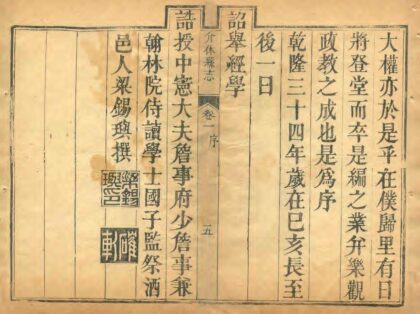 大權亦於是乎在僕歸里有日
將登堂而卒是編之業弁樂觀
政教之成也是爲序
乾隆三十四年歲在巳亥長至
後一日
詔舉經學
介休縣志 卷一 序 五
誥授中憲大夫詹事府少詹事兼
翰林院侍讀學士國子監祭酒
邑人梁錫璵撰
梁錫璵印
確軒